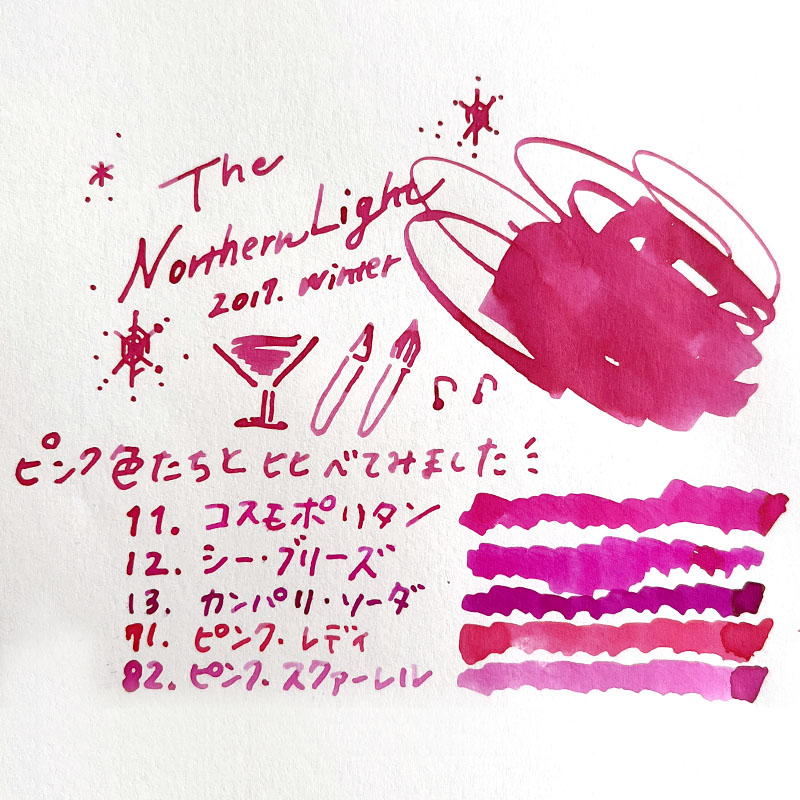 The
Northern Light
2017. Winter
ピンク色たちと比べてみました
11. コスモポリタン
12. シー・ブリーズ
13. カンパリ・ソーダ
71. ピンク・レディ
82. ピンク・スクァーレル